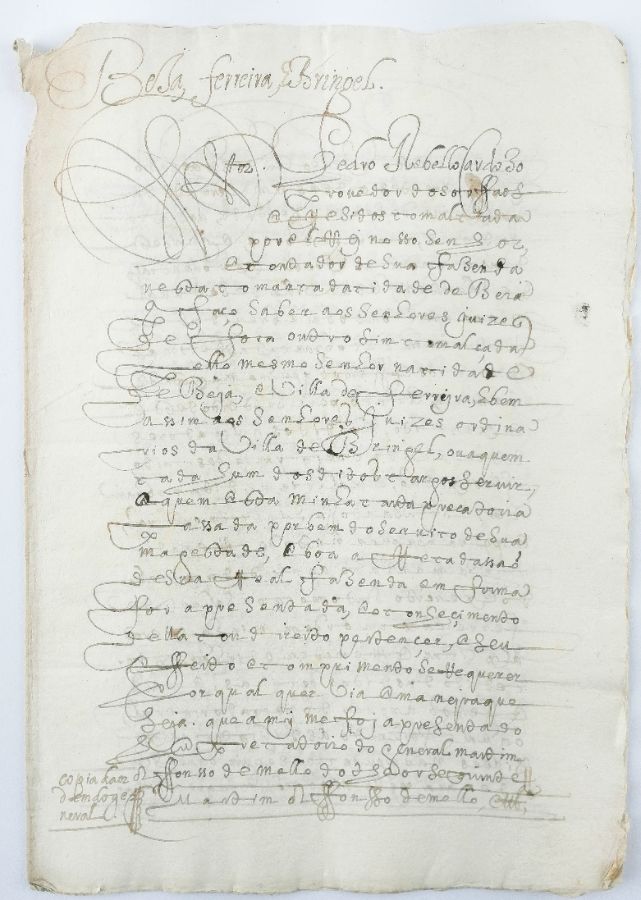 Beja, ferreira, Bringel.
Dor. Pedro Rebello Cardozo
Provedor dos orffaõs
e rezidos comalcada
por el Rej nosso senhor
e contador de sua fazenda
nesta comarca da cidade de Beia
faço saber aos senhores juizes
de fora outro sim comalcada
pello mesmo senhor na cidade
de Beja, e Villa de fferreira, e bem
assim aos senhores Juizes ordina
rios da Villa de Bringel, ou a quem
cada hum dos ditos cargos servir,
a quem esta minha carta precatoria
passada por bem do serviço de sua
magestade, e boa a Recadassaõ
de sua Real fazenda em forma
for apresentada, e o conheçimento
della com direito pertençer, e seu
effeito e comprimento se Requerer
por qual quer via e maneira que
seja. que a mj me foj apresentado
hum precatorio do General martim
Affonsso de mello do theor seguinte
Martim Affonsso de mello,
copia da or
dem do ge
neral